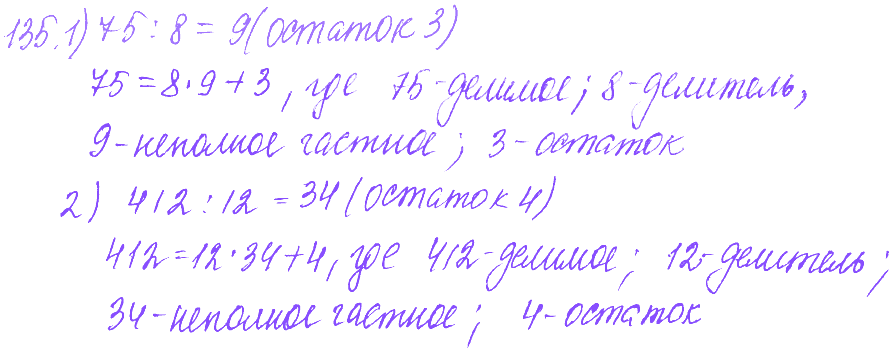 135.1) 75 : 8 = 9 (остаток 3)
75 = 8 · 9 + 3 , где 75 - делимое ; 8 - делитель,
9 - неполное частное ; 3 - остаток
2) 412 : 12 = 34 (остаток 4)
412 = 12 · 34 + 4 , где 412 - делимое ; 12 - делитель ;
34 - неполное частное ; 4 - остаток